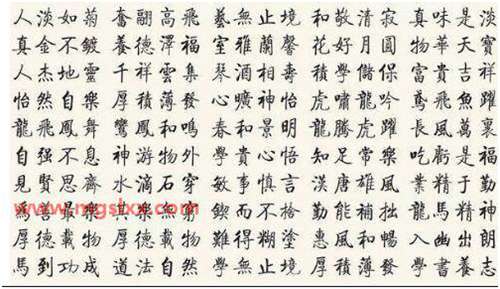 人淡如菊 奮翮高飛 藝無止境 和敬清寂 真味是淡
真金不鍍 養德澤福 室雅蘭馨 花好月圓 物華天寶
人杰地靈 千祥雲集 琴酒相壽 積學儲保 富貴吉祥
怡然自樂 厚積薄發 心曠神怡 虎嘯龍吟 鳶飛魚躍
龍飛鳳舞 鸞鳳和鳴 春和景明 龍騰虎躍 長風萬裏
自强不息 神游物外 學貴心悟 知足常樂 吃虧是福
見賢思齊 水滴石穿 敏事慎言 漢唐雄風 業精于勤
鍥而不 勤能補拙 龍馬精神
厚德載物 厚德載物 難得糊塗 惠風和暢 入幽出朗
馬到功成 道法自然 學無止境 厚積薄發 學書養志
www.mgslxx.com